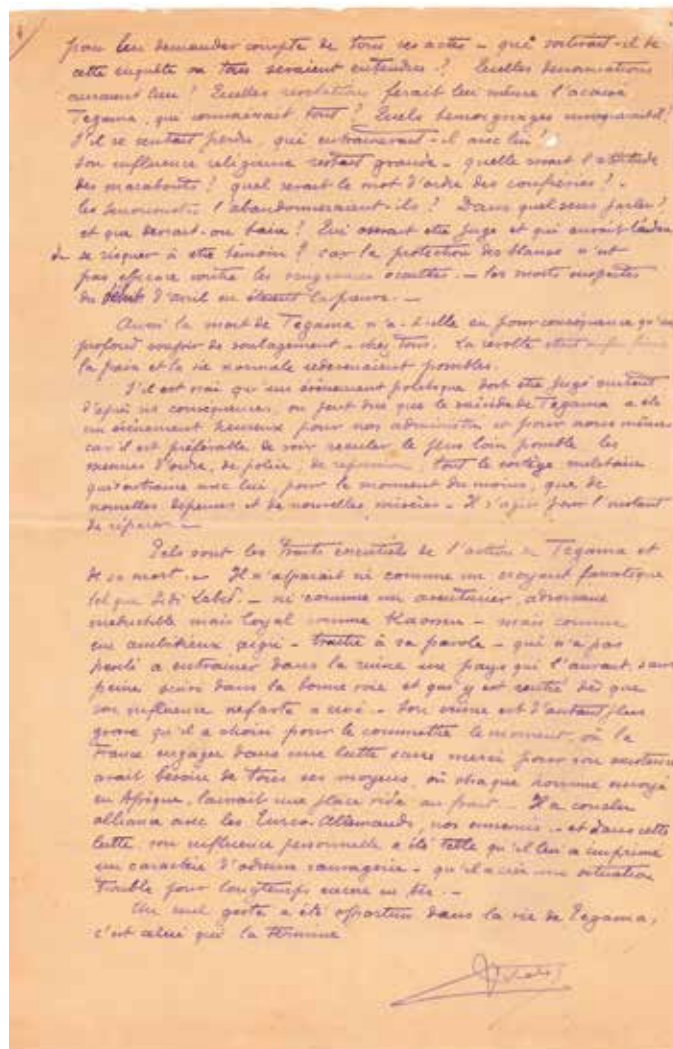 pour lui demander compte de tous ses actes - que sortirait-il de
cette enquête où tous seraient entendus ? Quelles dénonciations
auraient lieu ! Quelles révélations ferait lui même l'accusé
Tegama, qui connaissait tout ? Quels témoignages invoquerait-il !
S'il se sentait perdu, qui entrainerait-il avec lui !
Son influence religieuse restait grande - quelle serait l'attitude
des marabouts ? quel serait le mot d'ordre des confréries ? -
les senoussistes l'abandonneraient-ils ? Dans quel sens parler ?
et que devait-on taire ? Qui oserait être juge et qui aurait l'audace
de se risquer à être témoin ? car la protection des blancs n'est
pas efficace contre les vengeances occultes. - les morts suspectes
du début d'avril en étaient la preuve. -
Aussi la mort de Tegama n'a-t-elle eu pour conséquence qu'un
profond soupir de soulagement - chez tous. La révolte était enfin
la paix et la vie normale redevenaient possibles.
S'il est vrai qu'un évènement politique doit être jugé surtout
d'après ses conséquences, on peut dire que le suicide de Tegama a été
un évènement heureux pour nos administrés et pour nous mêmes
car il est préférable de voir reculer le plus loin possible les
mesures d'ordre, de police, de répression, tout le cortège militaire
qui n'entraine avec lui, pour le moment du moins, que de
nouvelles dépenses et de nouvelles misères - Il s'agit pour l'instant
de réparer -
Tels sont les traits essentiels de l'action de Tegama et
de sa mort. - Il n'apparait ni comme un croyant fanatique
tel que Sidi Labid. - ni comme un aventurier, adversaire
irréductible mais loyal comme Kaossen - mais comme
un ambitieux aigri - traitre à sa parole - qui n'a pas
hésité a entrainer dans la ruine un pays qui l'aurait, sans
peine suivi dans la bonne voie et qui y est rentré dès que
son influence néfaste a cessé - Son crime est d'autant plus
grave qu'il a choisi pour le commettre le moment, où la
France engagée dans une lutte sans merci pour son existence
avait besoin de tous ses moyens, où chaque homme envoyé
en Afrique, laissait une place vide au front - Il a conclu
alliance avec les Turco-Allemands, nos ennemis - et dans cette
lutte, son influence personnelle a été telle qu'il lui a imprimé
un caractère d'odieuse sauvagerie - qu'il a créé une situation
trouble pour longtemps encore en Aïr. -
Un seul geste a été opportun dans la vie de Tegama,
c'est celui qui la termine